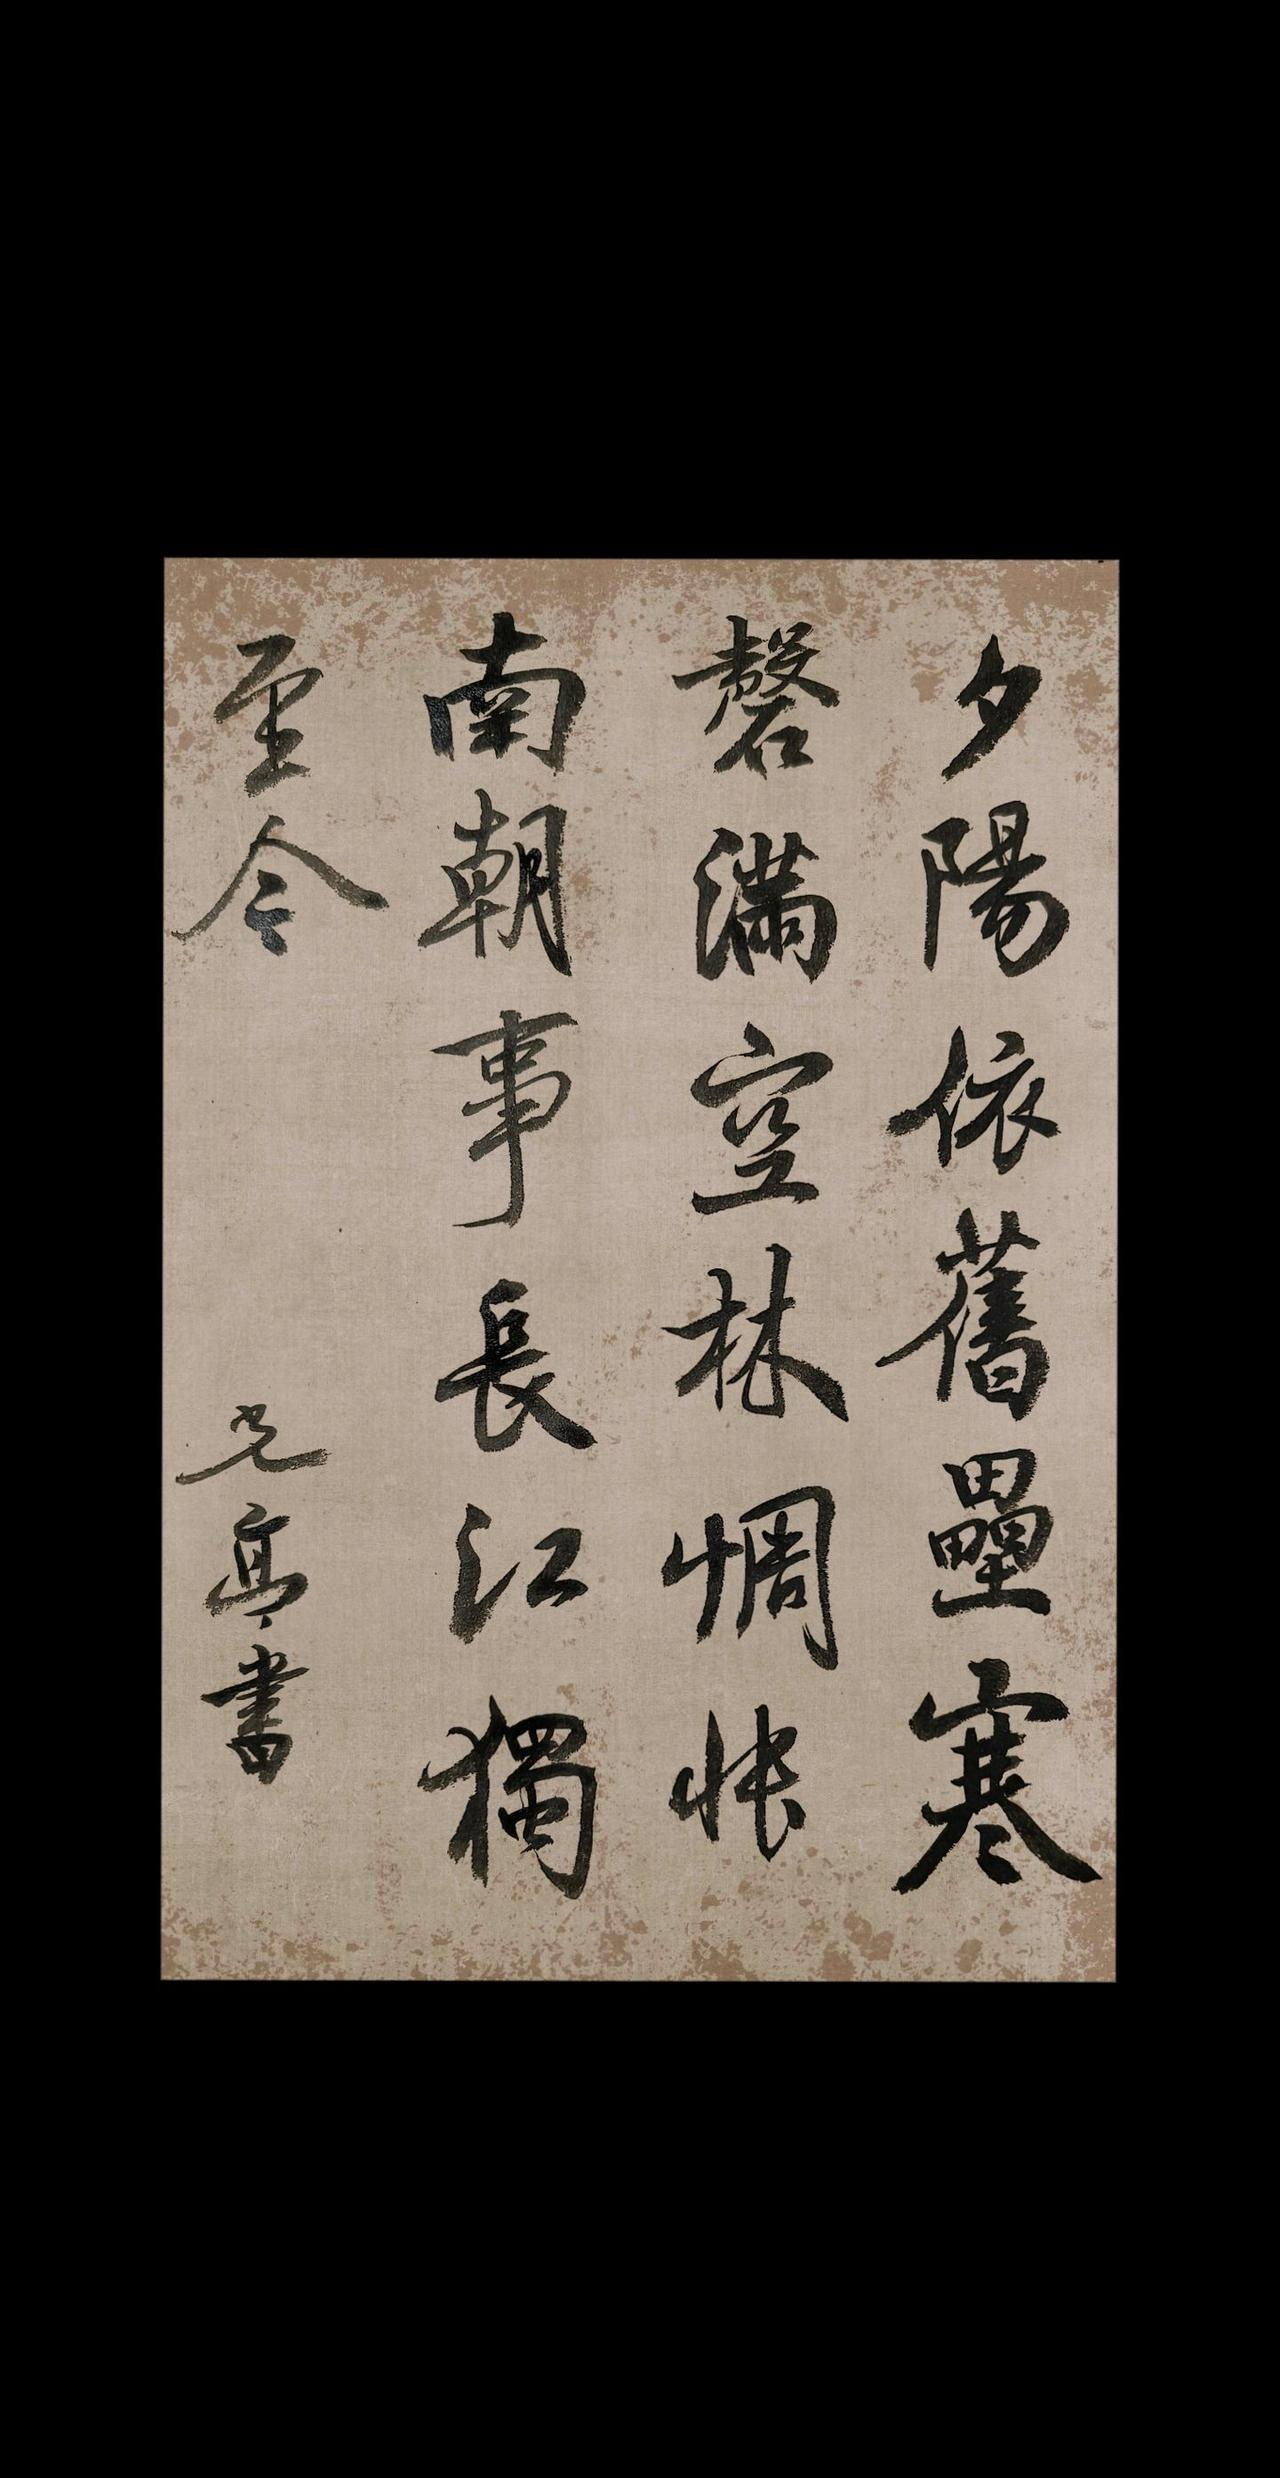 夕陽依舊壘寒
磬滿空林惆悵
南朝事長江獨
至今
光亭書